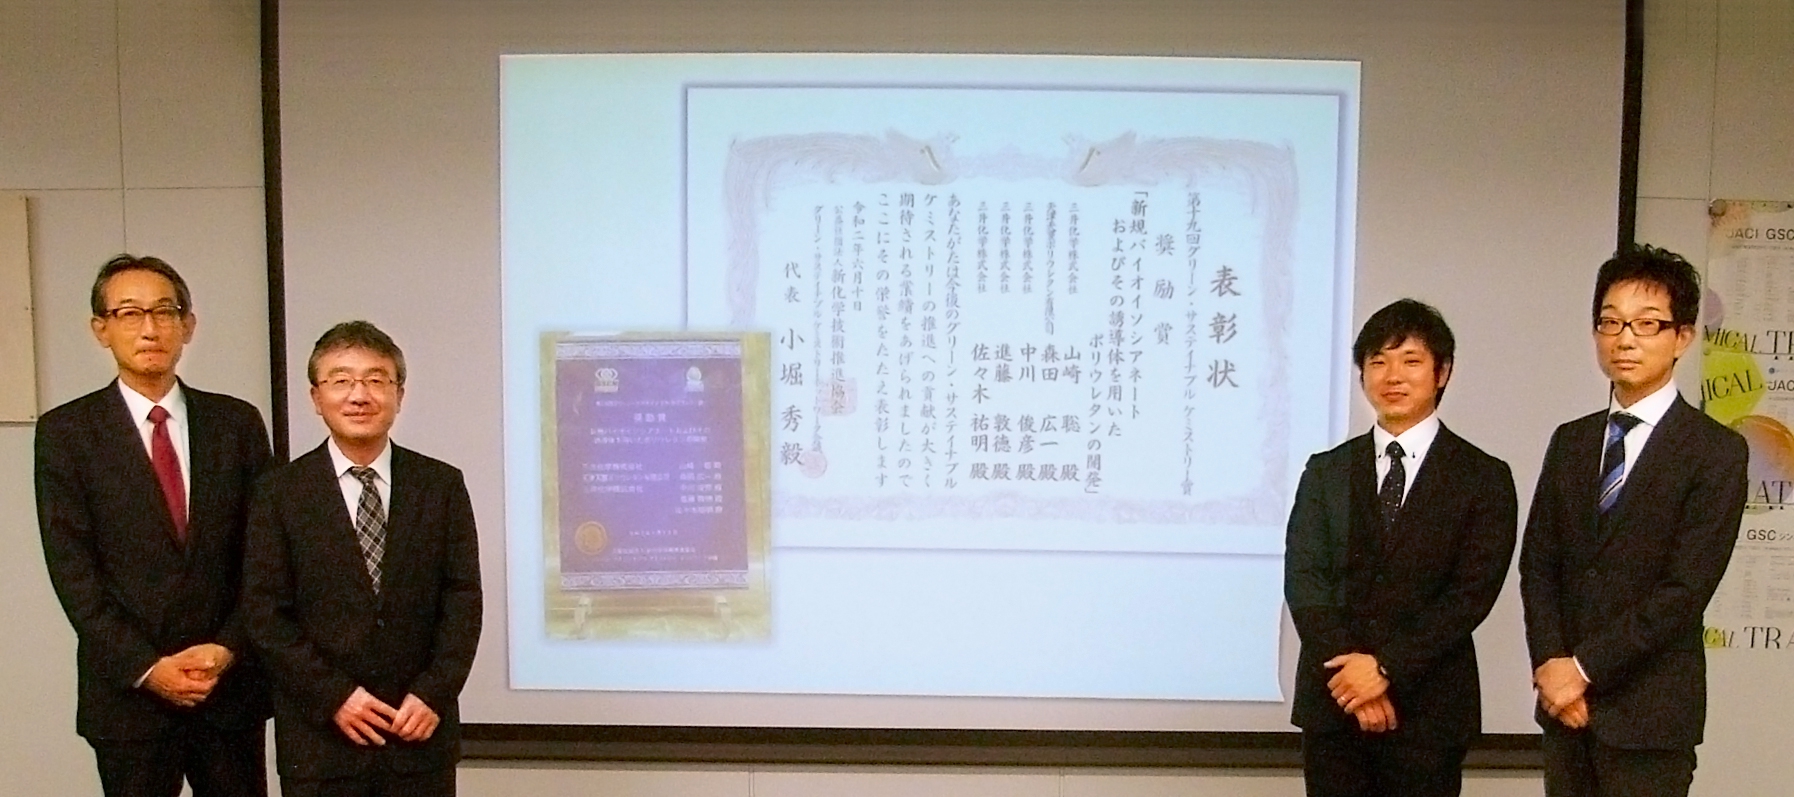 表彰状
第十九回グリーン・サステイナブル ケミストリー賞
奨励賞
「新規バイオイソシアネート
およびその誘導体を用いた
ポリウレタンの開発」
三井化学株式会社 山崎 聡 殿
森田 広一 殿
三井化学株式会社 中川 俊彦 殿
三井化学株式会社 進藤 敦徳 殿
三井化学株式会社 佐々木 祐明 殿
あなたがたは今後のグリーン・サステイナブル
ケミストリーの推進への貢献が大きく
期待される業績をあげられましたので
ここにその栄誉をたたえ表彰します
令和二年六月十日
公益社団法人 新化学技術推進協会
グリーン・サステイナブル ケミストリー
代表 小堀 秀毅
奨励賞
JACI GSC
MICAL TR
MICAL
JACI
GSC シン
TRA